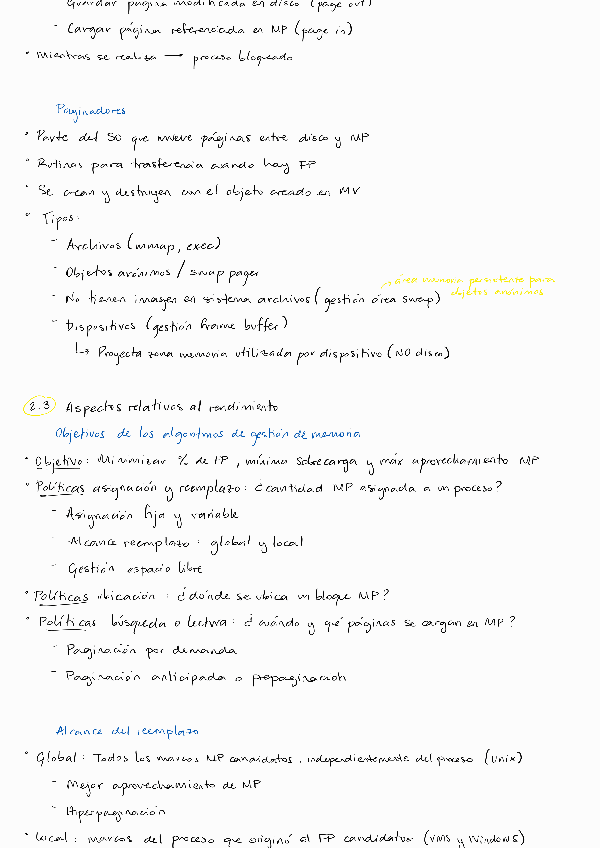 Guardar página modificada en disco (page out)
- Cargar página referenciada en MP (page in)
° Mientras se realiza → proceso bloqueado
Paginadores
° Parte del SO que mueve páginas entre disco y MP
° Rutinas para trasferencia cuando hay FP
° Se crean y destruyen con el objeto creado en MV
° Tipos:
- Archivos (mmap, exec)
- Objetos anónimos / swap pager
→ área memoria persistente para
- No tienen imagen en sistema archivos (gestión área swap)
objetos anónimos
- Dispositivos (gestión frame buffer)
↳ Proyecta zona memoria utilizada por dispositivo (NO disco)
2.3 Aspectos relativos al rendimiento
Objetivos de los algoritmos de gestión de memoria
° Objetivo: Minimizar % de FP, mínima sobrecarga y máx aprovechamiento MP
° Políticas asignación y reemplazo: ¿cantidad MP asignada a un proceso?
- Asignación fija y variable
- Alcance reemplazo: global y local
- Gestión espacio libre
° Políticas ubicación: ¿dónde se ubica un bloque MP?
° Políticas búsqueda o lectura: ¿cuándo y qué páginas se cargan en MP?
- Paginación por demanda
- Paginación anticipada o prepaginación
Alcance del reemplazo
° Global: Todos los marcos MP candidatos, independientemente del proceso (Unix)
- Mejor aprovechamiento de MP
- Hiperpaginación
° Local: marcos del proceso que originó el FP candidatos (VMS y Windows)